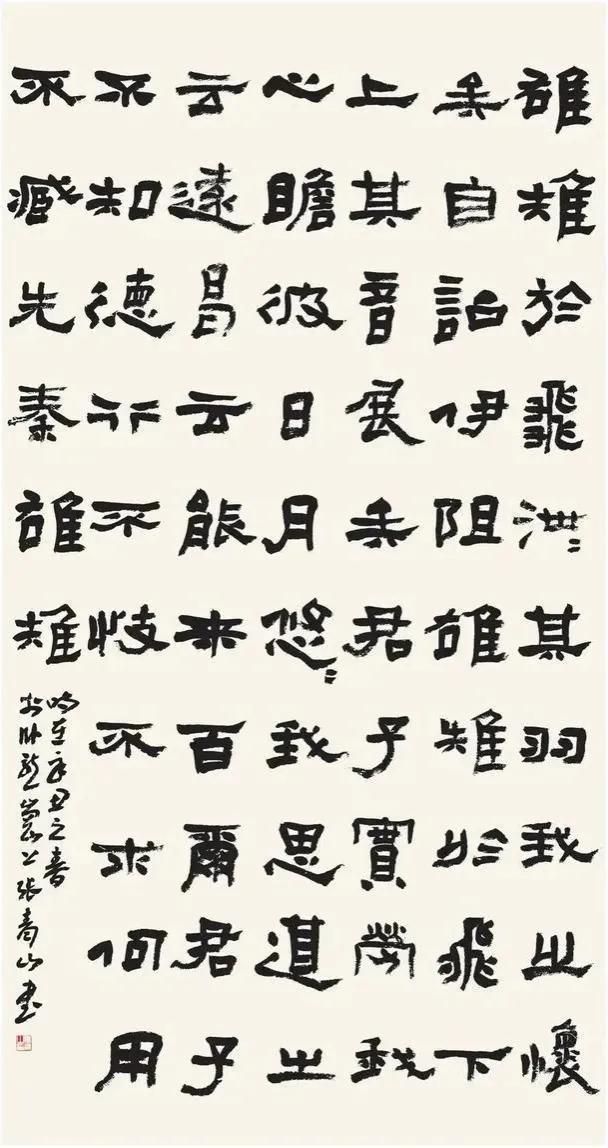 雄雉於飛泄〻其羽我之懷
矣自詒伊阻雄雉於飛下
上其音展矣君子實勞我
心瞻彼日月悠〻我思道之
云遠曷云能来百爾君子
不知德行不忮不求何用
不臧先秦雄雉
時在辛丑之春
於卧龍崗上張青山書